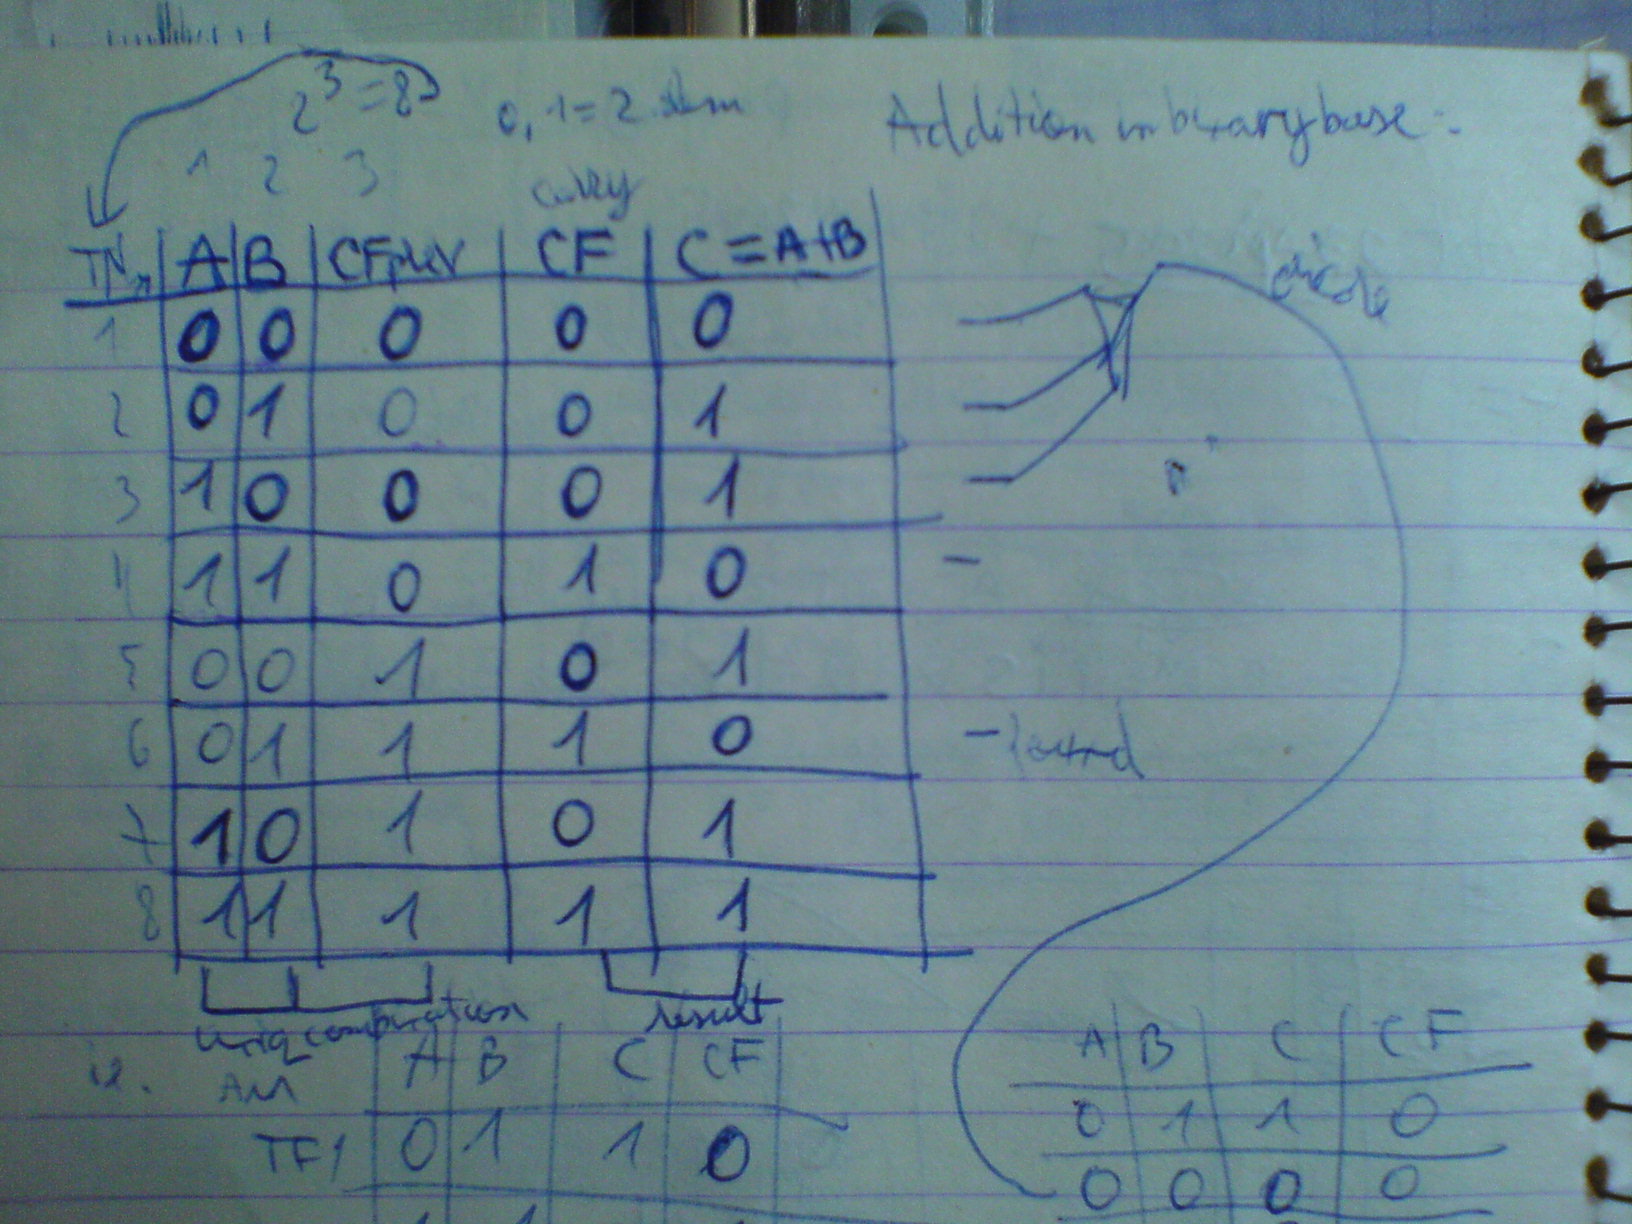 2³ = 8
0, 1 = 2
Addition in binary base :
1 2 3
carry
TN A B CFprev CF C = A+B
1 0 0 0 0 0
2 0 1 0 0 1
3 1 0 0 0 1
4 1 1 0 1 0 -
5 0 0 1 0 1
6 0 1 1 1 0 -
7 1 0 1 0 1
8 1 1 1 1 1
uniq combination result
A B C CF
TF1 0 1 1 0
A B C CF
0 1 1 0
0 0 0 0